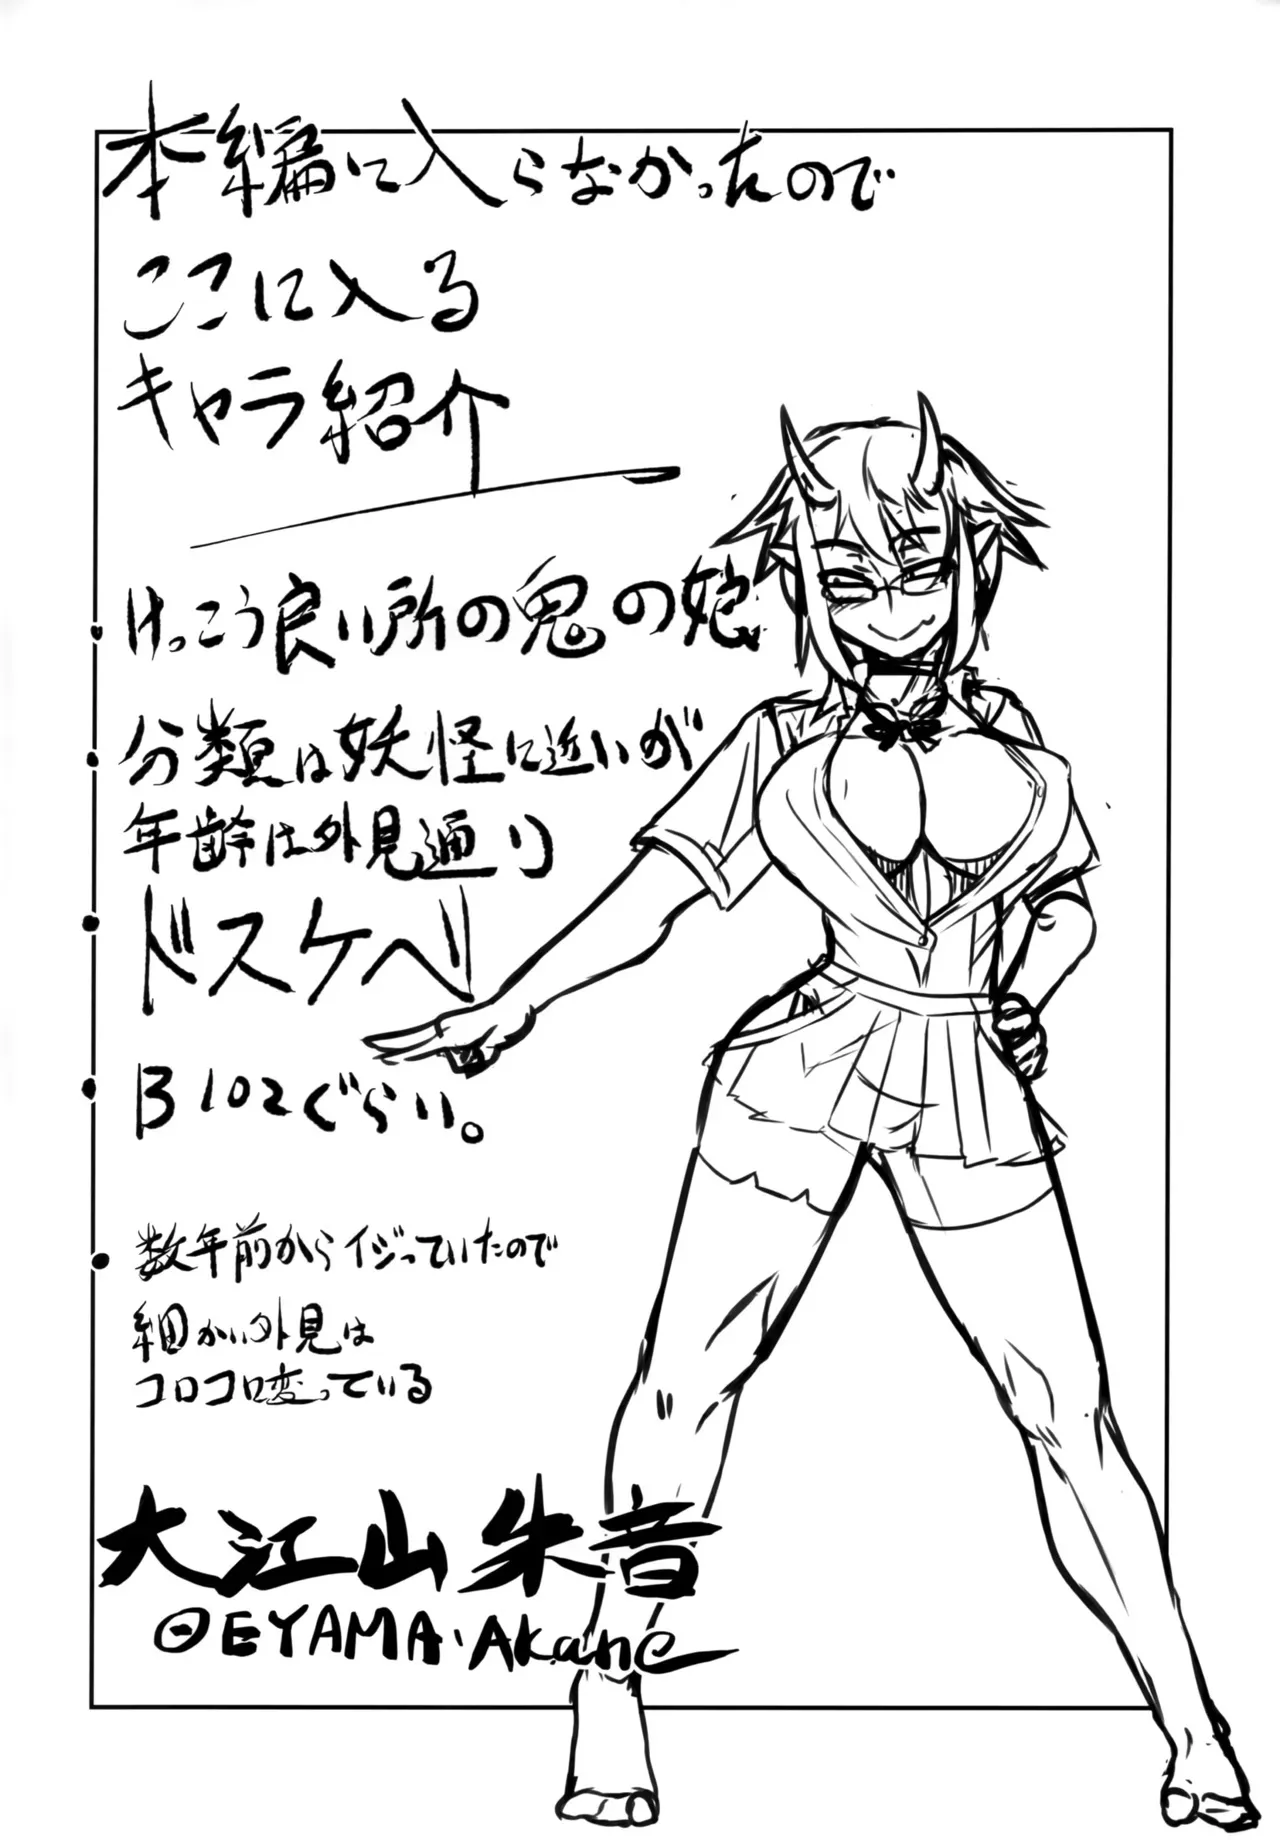 本編に入らなかったので
ここに入る
キャラ紹介
・けっこう良い所の鬼の娘
・分類は妖怪に近いが
年齢は外見通り
・ドスケベ
・B102ぐらい。
・数年前からイジっていたので
細かい外見は
コロコロ変っている
大江山朱音
OEYAMA・Akane